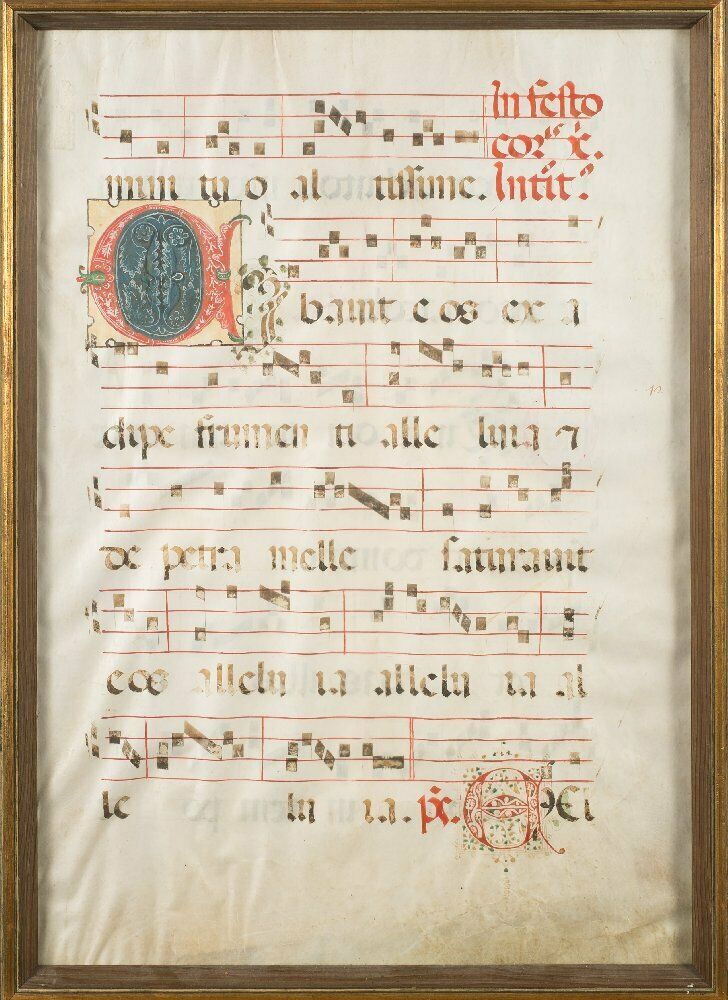 In festo
cor.is x.
mini tu o al tissime. Intit.
C
ibavit eos ex a
dipe frumen ti alle luia 7
de petra melle saturavit
eos allelu ia allelu ia al
le lu ia. ps. E